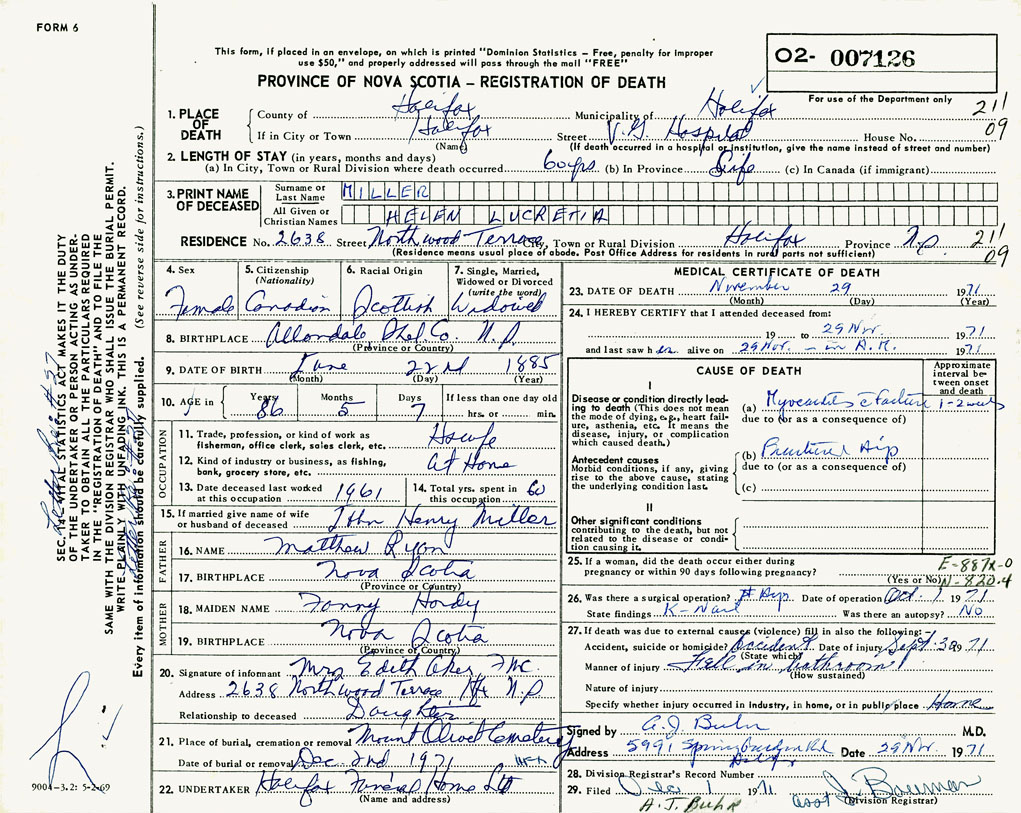 FORM 6
This form, if placed in an envelope, on which is printed "Dominion Statistics – Free, penalty for improper
use $50," and properly addressed will pass through the mail "FREE"
O2- 007126
For use of the Department only
PROVINCE OF NOVA SCOTIA – REGISTRATION OF DEATH
1. PLACE OF DEATH
County of Halifax Municipality of Halifax 211
If in City or Town Halifax Street V.G. Hospital House No. 09
(Name) (If death occurred in a hospital or institution, give the name instead of street and number)
2. LENGTH OF STAY (in years, months and days)
(a) In City, Town or Rural Division where death occurred 60 yrs (b) In Province Life (c) In Canada (if immigrant)
3. PRINT NAME OF DECEASED
Surname or Last Name MILLER
All Given or Christian Names HELEN LUCRETIA
RESIDENCE No. 2638 Street Northwood Terrace City, Town or Rural Division Halifax Province N.S. 211
(Residence means usual place of abode. Post Office Address for residents in rural parts not sufficient) 09
4. Sex Female
5. Citizenship (Nationality) Canadian
6. Racial Origin Scottish
7. Single, Married, Widowed or Divorced (write the word) Widowed
8. BIRTHPLACE Allendale Shel. Co. N.S.
(Province or Country)
9. DATE OF BIRTH June 22nd 1885
(Month) (Day) (Year)
10. AGE in Years 86 Months 5 Days 7 If less than one day old hrs. or min.
OCCUPATION
11. Trade, profession, or kind of work as fisherman, office clerk, sales clerk, etc. Hswfe
12. Kind of industry or business, as fishing, bank, grocery store, etc. At Home
13. Date deceased last worked at this occupation 1961
14. Total yrs. spent in this occupation 60
15. If married give name of wife or husband of deceased John Henry Miller
FATHER
16. NAME Matthew Ryan
17. BIRTHPLACE Nova Scotia
(Province or Country)
MOTHER
18. MAIDEN NAME Fanny Hardy
19. BIRTHPLACE Nova Scotia
(Province or Country)
20. Signature of informant Mrs Edith Aker
Address 2638 Northwood Terrace Hfx N.S.
Relationship to deceased Daughter
21. Place of burial, cremation or removal Mount Olivet Cemetery
Date of burial or removal Dec 2nd 1971 Hfx
22. UNDERTAKER Halifax Funeral Home Ltd
(Name and address)
MEDICAL CERTIFICATE OF DEATH
23. DATE OF DEATH November 29 1971
(Month) (Day) (Year)
24. I HEREBY CERTIFY that I attended deceased from:
19 to 29 Nov. 1971
and last saw her alive on 29 Nov. – in A.M. 1971
CAUSE OF DEATH
Approximate interval between onset and death
I
Disease or condition directly leading to death (This does not mean the mode of dying, e.g., heart failure, asthenia, etc. It means the disease, injury, or complication which caused death.)
(a) Failure 1-2 weeks
due to (or as a consequence of)
Antecedent causes
Morbid conditions, if any, giving rise to the above cause, stating the underlying condition last.
(b) Fractured Hip
due to (or as a consequence of)
(c)
II
Other significant conditions
contributing to the death, but not related to the disease or condition causing it.
25. If a woman, did the death occur either during pregnancy or within 90 days following pregnancy? E-887X-0
(Yes or No) N-820.4
26. Was there a surgical operation? Hip Date of operation Oct. 1 1971
State findings K-Nail Was there an autopsy? No
27. If death was due to external causes (violence) fill in also the following:
Accident, suicide or homicide? Accident Date of injury Sept 30 1971
(State which)
Manner of injury Fell in bathroom
(How sustained)
Nature of injury
Specify whether injury occurred in Industry, in home, or in public place Home
Signed by A.J. Buhr M.D.
Address 5991 Spring Garden Rd Date 29 Nov. 1971
Halifax
28. Division Registrar's Record Number
29. Filed Dec 1 1971 asst J. Bauman
A.J. Buhr (Division Registrar)
SEC. 14 VITAL STATISTICS ACT MAKES IT THE DUTY
OF THE UNDERTAKER OR PERSON ACTING AS UNDERTAKER TO OBTAIN ALL THE PARTICULARS REQUIRED
IN THE "REGISTRATION OF DEATH" AND TO FILE THE
SAME WITH THE DIVISION REGISTRAR WHO SHALL ISSUE THE BURIAL PERMIT.
WRITE PLAINLY WITH UNFADING INK. THIS IS A PERMANENT RECORD.
Every item of information should be carefully supplied. (See reverse side for instructions.)
9004-3.2: 5-2-69